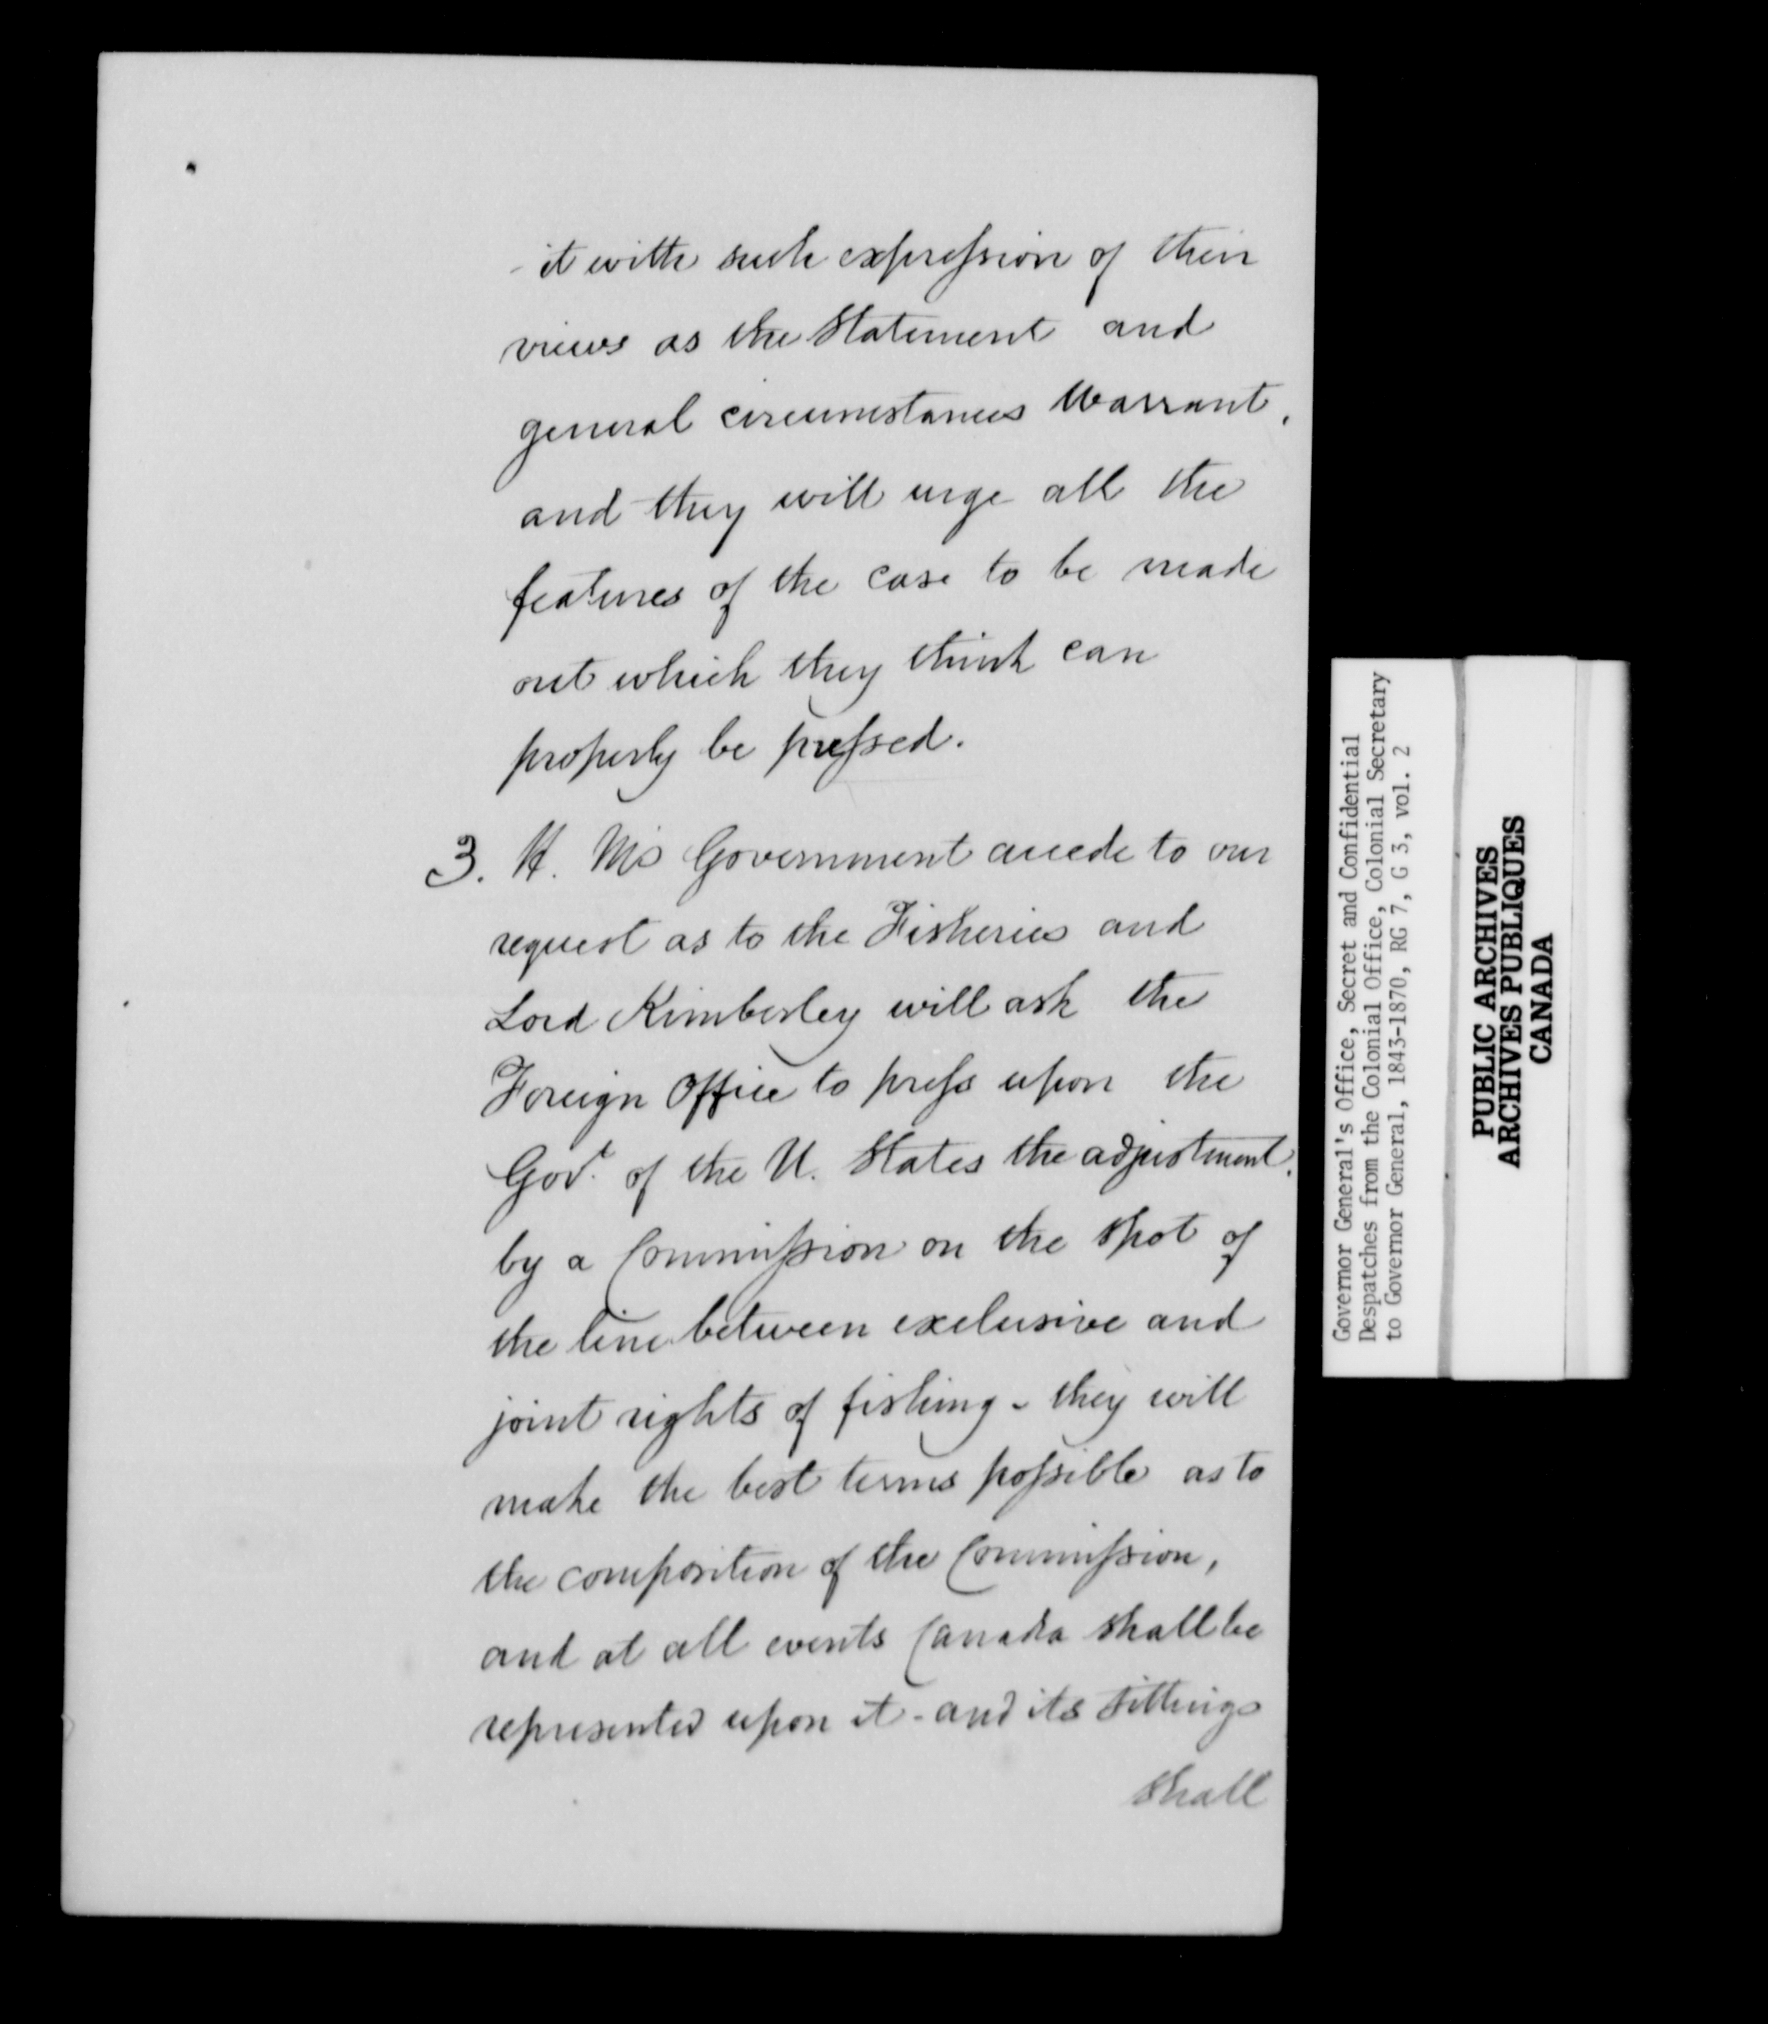 it with such expression of their
views as the Statement and
general circumstances warrant,
and they will urge all the
features of the case to be made
out which they think can
properly be pressed.
3. H. M's Government accede to our
request as to the Fisheries and
Lord Kimberley will ask the
Foreign Office to press upon the
Govt. of the U. States the adjustment
by a Commission on the spot of
the line between exclusive and
joint rights of fishing - they will
make the best terms possible as to
the composition of the Commission,
and at all events Canada shall be
represented upon it - and its sittings
shall
Governor General's Office, Secret and Confidential
Despatches from the Colonial Office, Colonial Secretary
to Governor General, 1843-1870, RG 7, G 3, vol. 2
PUBLIC ARCHIVES
ARCHIVES PUBLIQUES
CANADA